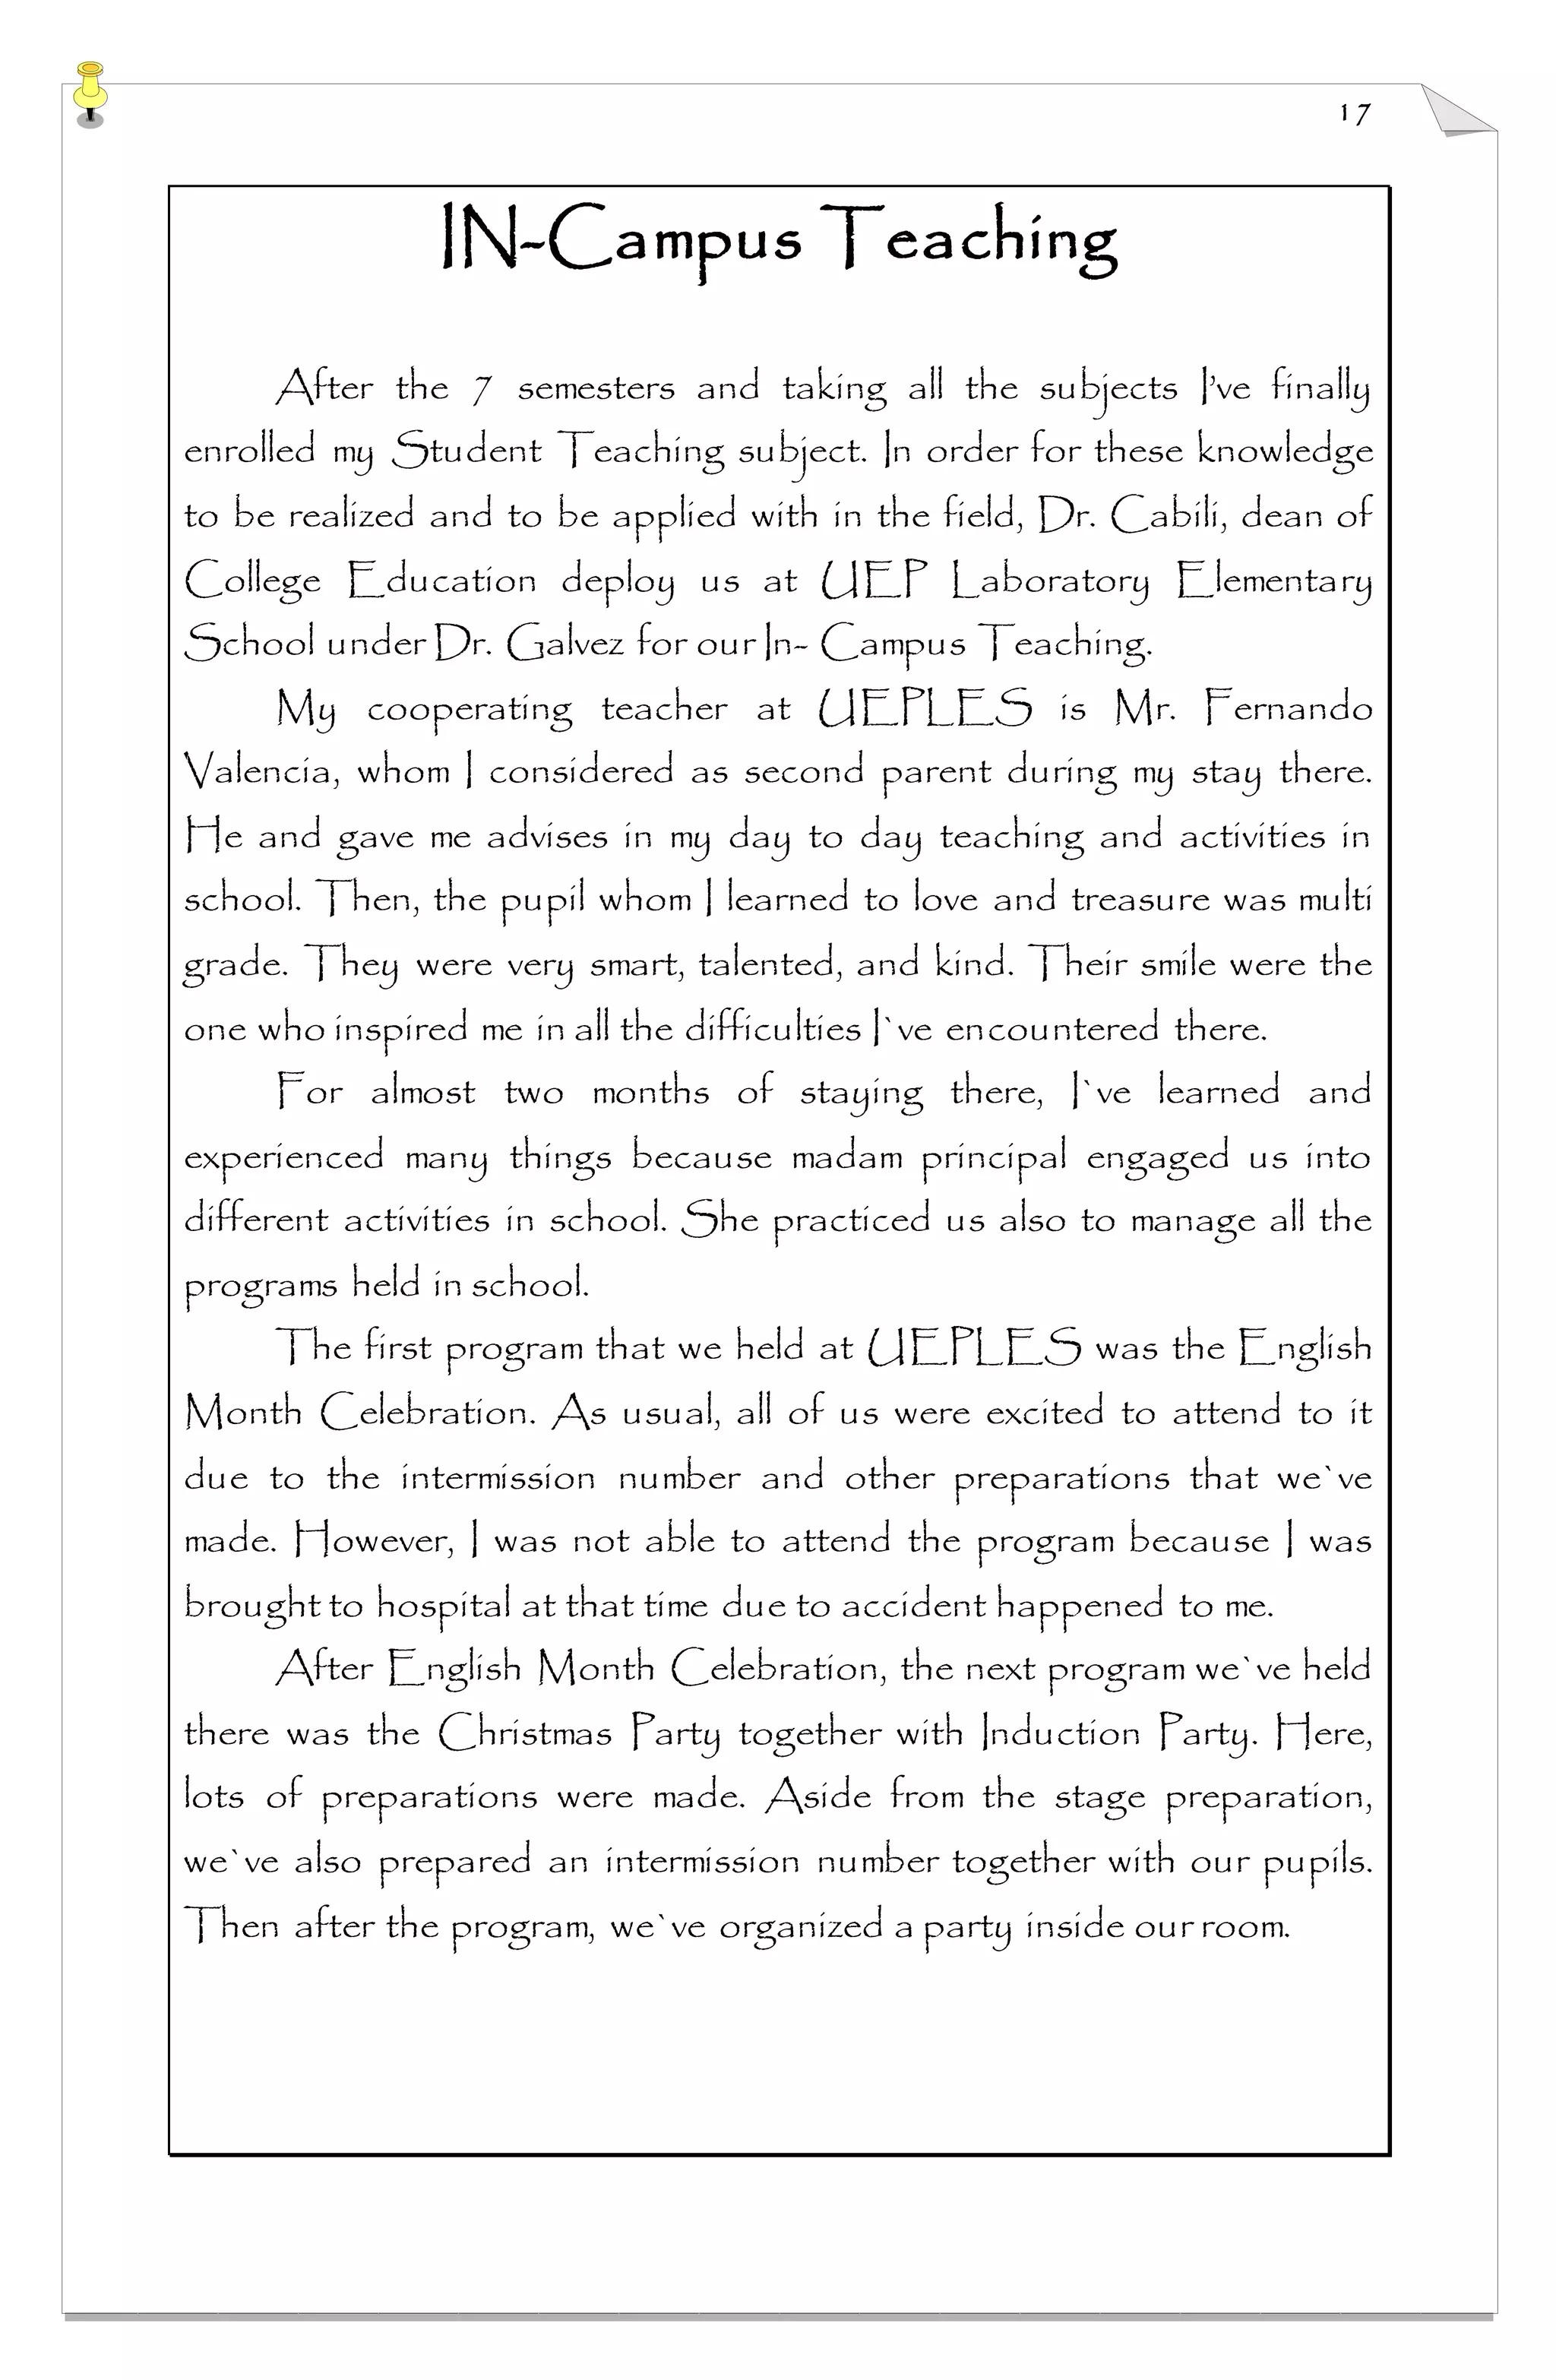 17
IN-Campus Teaching
After the 7 semesters and taking all the subjects I've finally
enrolled my Student Teaching subject. In order for these knowledge
to be realized and to be applied with in the field, Dr. Cabili, dean of
College Education deploy us at UEP Laboratory Elementary
School under Dr. Galvez for our In- Campus Teaching.
My cooperating teacher at UEPLES is Mr. Fernando
Valencia, whom I considered as second parent during my stay there.
He and gave me advises in my day to day teaching and activities in
school. Then, the pupil whom I learned to love and treasure was multi
grade. They were very smart, talented, and kind. Their smile were the
one who inspired me in all the difficulties I`ve encountered there.
For almost two months of staying there, I`ve learned and
experienced many things because madam principal engaged us into
different activities in school. She practiced us also to manage all the
programs held in school.
The first program that we held at UEPLES was the English
Month Celebration. As usual, all of us were excited to attend to it
due to the intermission number and other preparations that we`ve
made. However, I was not able to attend the program because I was
brought to hospital at that time due to accident happened to me.
After English Month Celebration, the next program we`ve held
there was the Christmas Party together with Induction Party. Here,
lots of preparations were made. Aside from the stage preparation,
we`ve also prepared an intermission number together with our pupils.
Then after the program, we`ve organized a party inside our room.